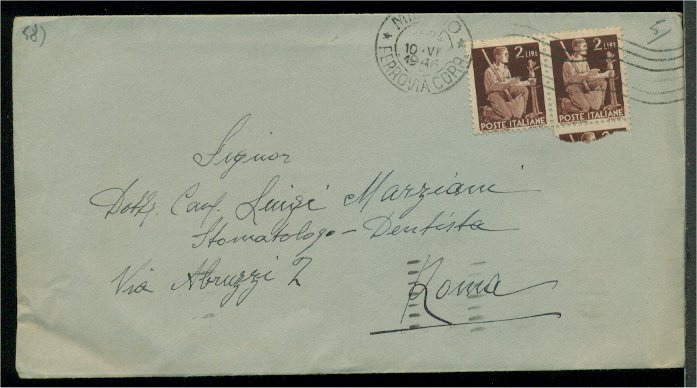 58)
5
MILANO
10·VI
1946
FERROVIA CORR.
2 LIRE
POSTE ITALIANE
2 LIRE
POSTE ITALIANE
Signor
Dott. Cav. Luigi Marziani
Stomatologo - Dentista
Via Abruzzi 2
Roma